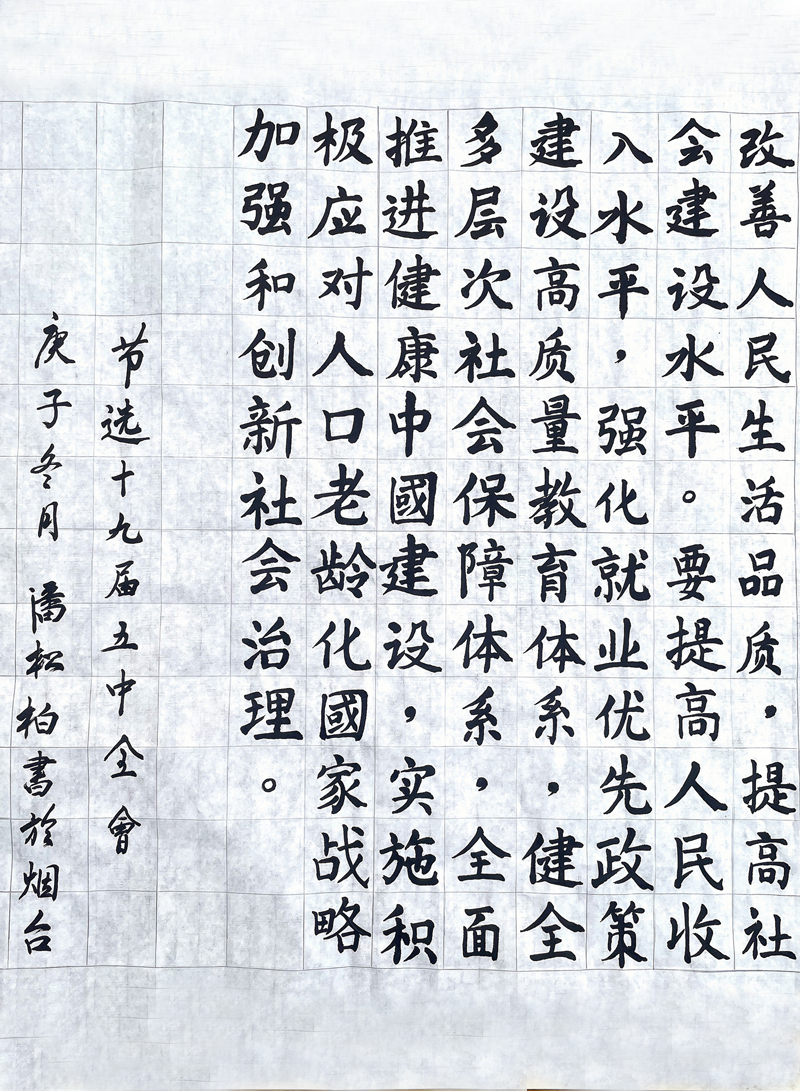 改善人民生活品质，提高社
会建设水平。要提高人民收
入水平，强化就业优先政策
建设高质量教育体系，健全
多层次社会保障体系，全面
推进健康中國建设，实施积
极应对人口老龄化國家战略
加强和创新社会治理。
节选十九届五中全會
庚子冬月 潘松柏書於烟台